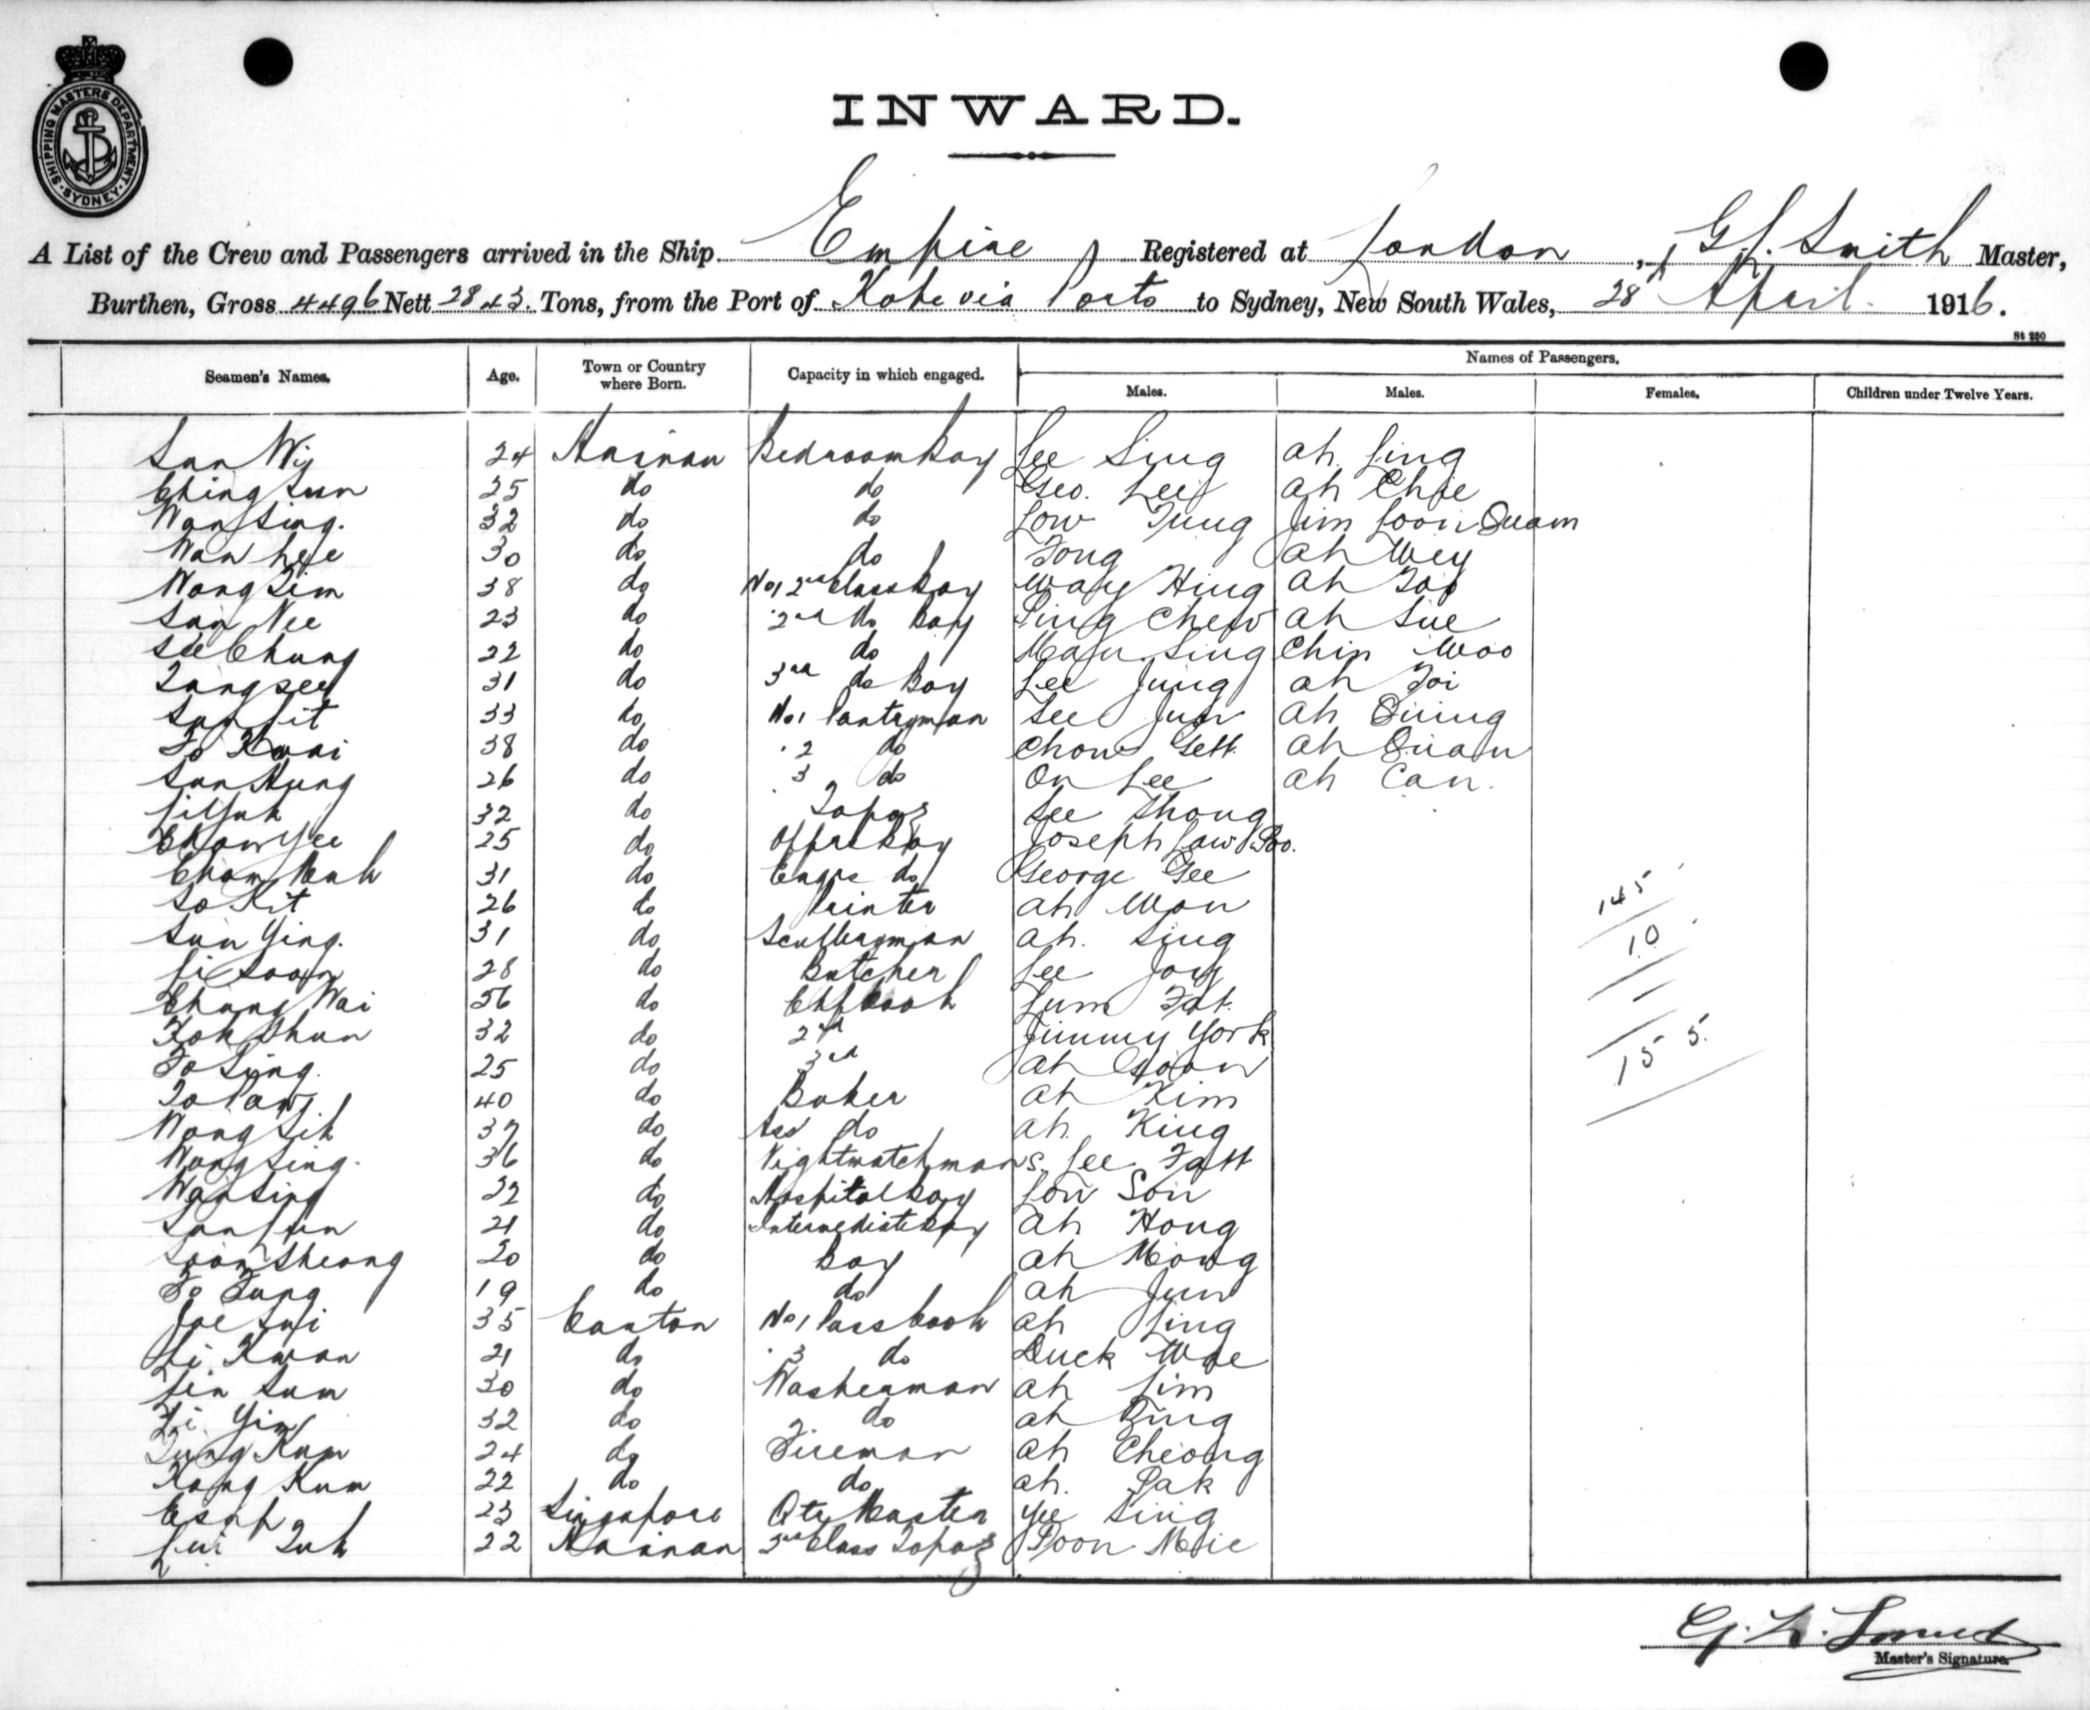 SHIPPING MASTERS DEPARTMENT · SYDNEY ·
INWARD.
A List of the Crew and Passengers arrived in the Ship Empire, Registered at London, G. L. Smith Master,
Burthen, Gross 4496 Nett 2843 Tons, from the Port of Kobe via Ports to Sydney, New South Wales, 28th April 1916.
St 250
Seamen's Names. Age. Town or Country where Born. Capacity in which engaged. Names of Passengers.
Males. Males. Females. Children under Twelve Years.
24 Hainan Bedroom Boy Lee Sing ah Ling
Ching Sun 25 do do Geo. Lee ah Chie
Wan Sing. 32 do do Low Tung Jim Loon Quam
Wan hee 30 do do Fong ah Wey
Wong Sim 38 do No 1 2nd Class Boy Way Hing ah
San Nee 23 do 2nd do Boy Ping Chew ah Sue
See Chung 22 do do Mau Sing Chin Woo
31 do 3rd do Boy Lee Jung ah Foi
33 do No 1 Pantryman See Jun ah Quing
Fo Kwai 38 do 2 do Chow Gett ah Quan
San Hung 26 do 3 do On Lee ah Can.
32 do Topaz See Thong
Chow Yee 25 do Offrs Boy Joseph Law Poo.
31 do Engrs do George Gee
So Kit 26 do Printer ah Won
San Ying. 31 do Sculleryman ah. Sing
Li Soon 28 do Butcher Lee Joy
Chung Wai 56 do Chf Cook Lum Fat.
Kok Shun 32 do 2nd Jimmy York
Fo Sing. 25 do 3rd ah Goon
40 do Baker ah Kim
Wong Sih 37 do Ass do ah King
Wong Sing. 36 do Nightwatchman S. Lee Fatt
Wan Sing 22 do Hospital Boy Lou Son
21 do Intermediate Boy ah Hong
Sheong 20 do Boy ah Mong
Fo Fung 19 do do ah Jun
35 Canton No 1 Pass Cook ah Ling
Li Kwan 21 do 3 do Duck Woe
Lin Sum 30 do Washerman ah Lim
Li Yim 32 do do ah Bing
Tung Kum 24 do Fireman ah Cheong
Kong Kum 22 do do ah. Pak
Esah 23 Singapore Qtr Master Yee Sing
Lui 22 Hainan 3rd Class Topaz Poon Mie
145
10
155.
Master's Signature.